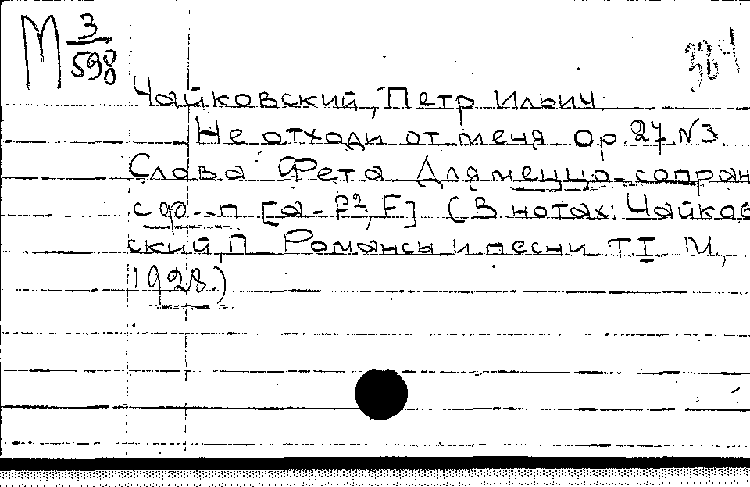 М 3/598
364
Чайковский, Петр Ильич.
Не отходи от меня Op. 27 №3.
Слова Фета Для меццо-сопран
с ф.-п [a - f², F] (В нотах: Чайков
ский, П Романсы и песни Т I М,
1928.)